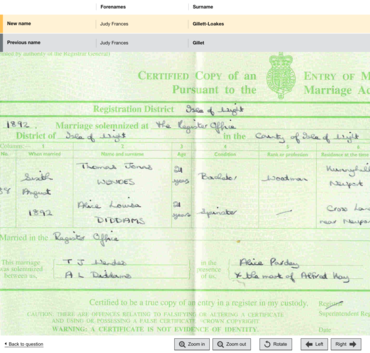 Forenames Surname
New name Judy Frances Gillett-Loakes
Previous name Judy Frances Gillet
CERTIFIED COPY of an ENTRY OF M
Pursuant to the Marriage Ac
Registration District Isle of Wight
1892. Marriage solemnized at The Register Office
District of Isle of Wight in the County of Isle of Wight
Columns:- 1 2 3 4 5 6
No. When married Name and surname Age Condition Rank or profession Residence at the time
Thomas Jones WENDES years Bachelor Woodman Newport
August 1892
Alice Louisa DIDDAMS years Spinster Cross Lane near Newport
Married in the Register Office
This marriage was solemnized between us, T J Wendes A L Diddams in the presence of us, Alice Purdey X the mark of Alfred Kay
Certified to be a true copy of an entry in a register in my custody.
Superintendent Reg
CAUTION: THERE ARE OFFENCES RELATING TO FALSIFYING OR ALTERING A CERTIFICATE
AND USING OR POSSESSING A FALSE CERTIFICATE. ©CROWN COPYRIGHT
WARNING: A CERTIFICATE IS NOT EVIDENCE OF IDENTITY. Date
Back to question Zoom in Zoom out Rotate Left Right